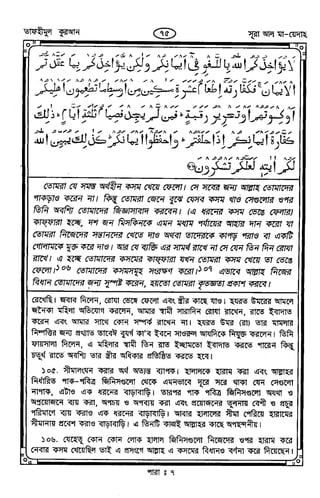 তাফহীমুল কুরআন
৭৫
সূরা আল মা-য়েদাহ
لَا يُؤَاخِذُكُمُ اللَّهُ بِاللَّغْوِ فِي أَيْمَانِكُمْ وَلَٰكِن يُؤَاخِذُكُم بِمَا عَقَّدتُّمُ
الْأَيْمَانَ ۖ فَكَفَّارَتُهُ إِطْعَامُ عَشَرَةِ مَسَاكِينَ مِنْ أَوْسَطِ مَا تُطْعِمُونَ أَهْلِيكُمْ
أَوْ كِسْوَتُهُمْ أَوْ تَحْرِيرُ رَقَبَةٍ ۖ فَمَن لَّمْ يَجِدْ فَصِيَامُ ثَلَاثَةِ أَيَّامٍ ۚ ذَٰلِكَ
كَفَّارَةُ أَيْمَانِكُمْ إِذَا حَلَفْتُمْ ۚ وَاحْفَظُوا أَيْمَانَكُمْ ۚ كَذَٰلِكَ يُبَيِّنُ اللَّهُ
لَكُمْ آيَاتِهِ لَعَلَّكُمْ تَشْكُرُونَ
তোমরা যে সমস্ত অর্থহীন কসম খেয়ে ফেলো। সে সবের জন্য আল্লাহ তোমাদের
পাকড়াও করেন না। কিন্তু তোমরা জেনে বুঝে যেসব কসম খাও সেগুলোর ওপর
তিনি অবশ্যি তোমাদের জিজ্ঞাসাবাদ করবেন। (এ ধরনের কসম ভেঙে ফেলার)
কাফ্ফারা হচ্ছে, দশ জন মিসকিনকে এমন মধ্যম পর্যায়ের আহার দান করো যা
তোমরা নিজেদের সন্তানদের খেতে দাও অথবা তাদেরকে কাপড় পরাও বা একটি
গোলামকে মুক্ত করে দাও। আর যে ব্যক্তি এর সামর্থ রাখে না সে যেন তিন দিন রোযা
রাখে। এ হচ্ছে তোমাদের কসমের কাফ্ফারা যখন তোমরা কসম খেয়ে তা ভেঙে
ফেলো।১০৬ তোমাদের কসমসমূহ সংরক্ষণ করো।১০৭ এভাবে আল্লাহ নিজের
বিধান তোমাদের জন্য সুস্পষ্ট করেন, হয়তো তোমরা কৃতজ্ঞতা প্রকাশ করবে।
রেখেছি। জবাব দিলেন, রোযা ভেঙে ফেলো এবং স্ত্রীর কাছে যাও। হযরত উমরের আমলে
জনৈকা মহিলা অভিযোগ করলেন, আমার স্বামী সারাদিন রোযা রাখেন, রাতে ইবাদাত
করেন এবং আমার সাথে কোন সম্পর্ক রাখেন না। হযরত উমর (রা) তার মামলার
নিষ্পত্তির জন্য প্রখ্যাত তাবেঈ বুযর্গ কা'ব ইবনে সাওরুল আযদিকে নিযুক্ত করলেন। তিনি
ফায়সালা দিলেন, এ মহিলার স্বামী তিন রাত ইচ্ছামতো ইবাদাত করতে পারেন কিন্তু
চতুর্থ রাতে অবশ্যি তার স্ত্রীর অধিকার প্রতিষ্ঠিত করতে হবে।
১০৫. সীমালংঘন করার অর্থ অত্যন্ত ব্যাপক। হালালকে হারাম করা এবং আল্লাহর
নির্ধারিত পাক-পবিত্র জিনিসগুলো থেকে এমনভাবে দূরে সরে থাকা যেন সেগুলো
নাপাক, এটাও এক ধরনের বাড়াবাড়ি। তারপর পাক পবিত্র জিনিসগুলো অযথা ও
অপ্রয়োজনে ব্যয় করা, অপচয় ও অপব্যয় করা এবং প্রয়োজনের তুলনায় বেশী ও প্রচুর
পরিমাণে ব্যয় করাও এক ধরনের বাড়াবাড়ি। আবার হালালের সীমা পেরিয়ে হারামের
সীমানায় প্রবেশ করাও বাড়াবাড়ি। এ তিনটি কাজই আল্লাহর কাছে অপছন্দনীয়।
১০৬. যেহেতু কোন কোন লোক হালাল জিনিসগুলো নিজেদের ওপর হারাম করে
নেবার কসম খেয়েছিল তাই এ প্রসংগে আল্লাহ এ কসমের বিধানও বর্ণনা করে দিয়েছেন।
পারা : ৭